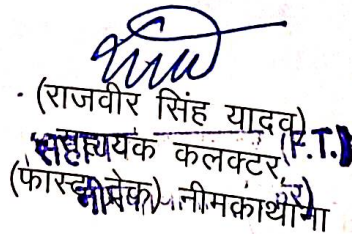 (राजवीर सिंह यादव)
सहायक कलक्टर, (F.T.)
(फास्ट ट्रेक) नीमकाथाना